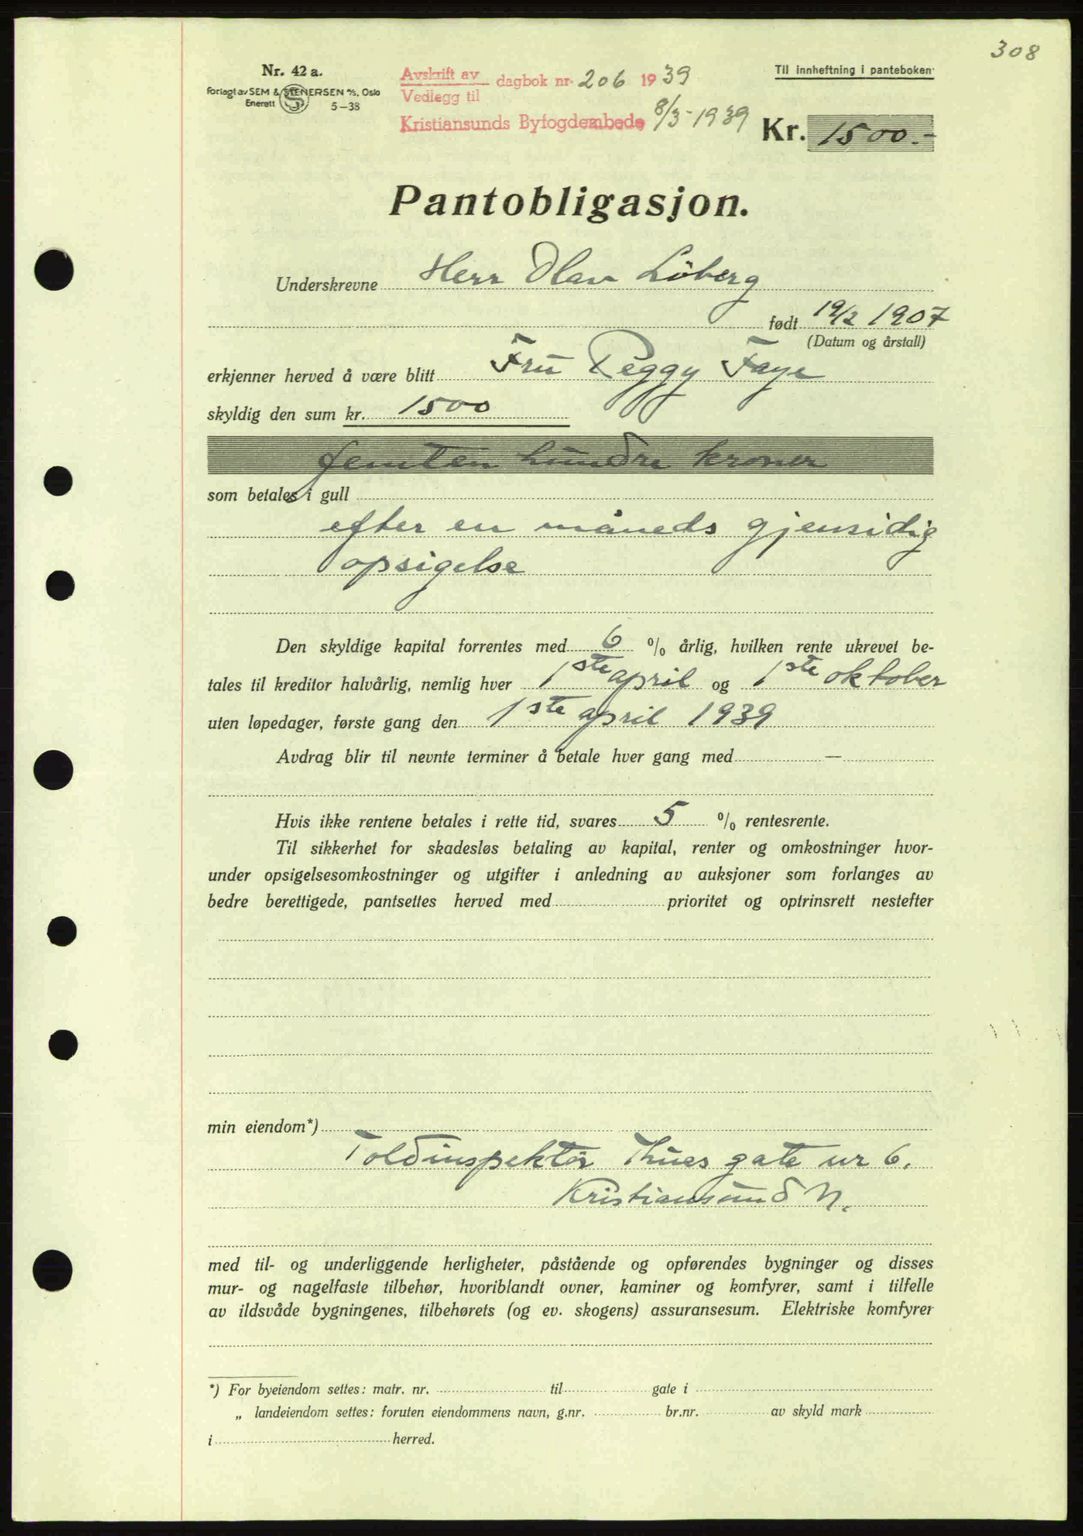 308
Nr. 42 a.
Forlagt av SEM & STENERSEN A/S, Oslo
Enerett 5-38
Avskrift av dagbok nr. 206 1939
Vedlegg til
Kristiansunds Byfogdembede 8/3-1939
Til innheftning i panteboken
Kr. 1500.-
Pantobligasjon.
Underskrevne Herr Olav Löberg
født 19/2 1907
(Datum og årstall)
erkjenner herved å være blitt Fru Peggy Faye
skyldig den sum kr. 1500
femten hundre kroner
som betales i gull
efter en måneds gjensidig
opsigelse
Den skyldige kapital forrentes med 6 % årlig, hvilken rente ukrevet be-
tales til kreditor halvårlig, nemlig hver 1ste april og 1ste oktober
uten løpedager, første gang den 1ste april 1939
Avdrag blir til nevnte terminer å betale hver gang med —
Hvis ikke rentene betales i rette tid, svares 5 % rentesrente.
Til sikkerhet for skadesløs betaling av kapital, renter og omkostninger hvor-
under opsigelsesomkostninger og utgifter i anledning av auksjoner som forlanges av
bedre berettigede, pantsettes herved med prioritet og optrinsrett nestefter
min eiendom*)
Toldinspektör Thues gate nr 6.
Kristiansund N.
med til- og underliggende herligheter, påstående og opførendes bygninger og disses
mur- og nagelfaste tilbehør, hvoriblandt ovner, kaminer og komfyrer, samt i tilfelle
av ildsvåde bygningenes, tilbehørets (og ev. skogens) assuransesum. Elektriske komfyrer
*) For byeiendom settes: matr. nr. til gate i
„ landeiendom settes: foruten eiendommens navn, g.nr. br.nr. av skyld mark
i herred.